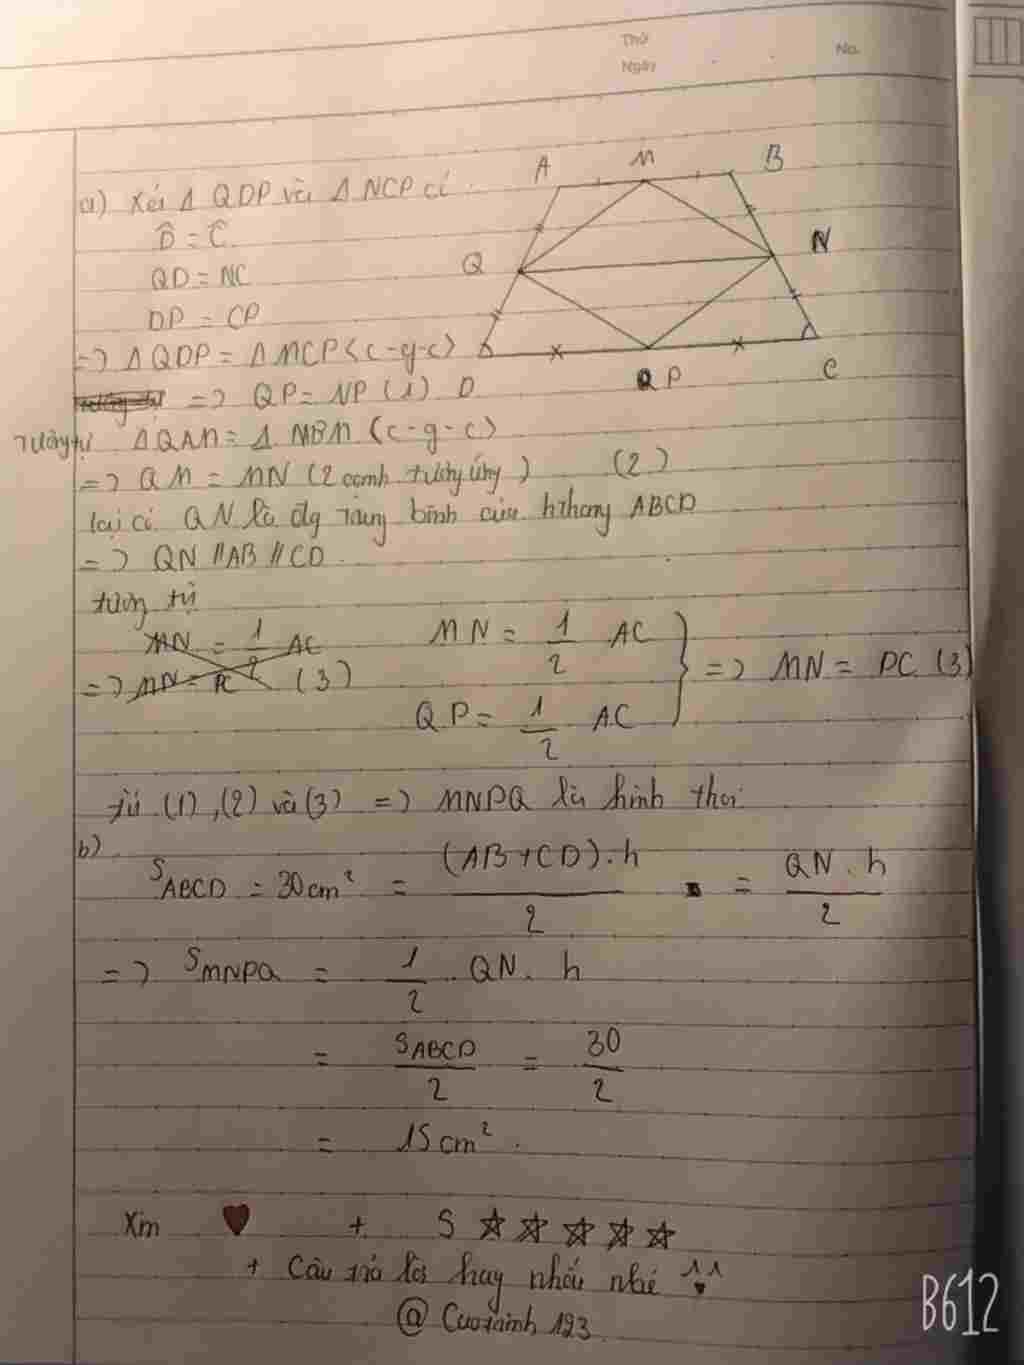 Thứ
Ngày
No.
A M B
Q N
D P C
a) Xét Δ QDP và Δ NCP có
D̂ = Ĉ
QD = NC
DP = CP
=> Δ QDP = Δ NCP (c-g-c)
=> QP = NP (1)
Tương tự Δ QAM = Δ NBM (c-g-c)
=> QM = MN (2 cạnh tương ứng) (2)
lại có QN là đg trung bình của hthang ABCD
=> QN // AB // CD
tương tự
MN = 1/2 AC MN = 1/2 AC
=> MN = PC (3) => MN = PC (3)
QP = 1/2 AC
từ (1), (2) và (3) => MNPQ là hình thoi
b)
S ABCD = 30 cm² = (AB + CD).h / 2 = QN . h / 2
=> S MNPQ = 1/2 . QN . h
= S ABCD / 2 = 30 / 2
= 15 cm².
Xin ♥ + 5 ☆ ☆ ☆ ☆ ☆
+ Câu trả lời hay nhất nhé ^^
B612